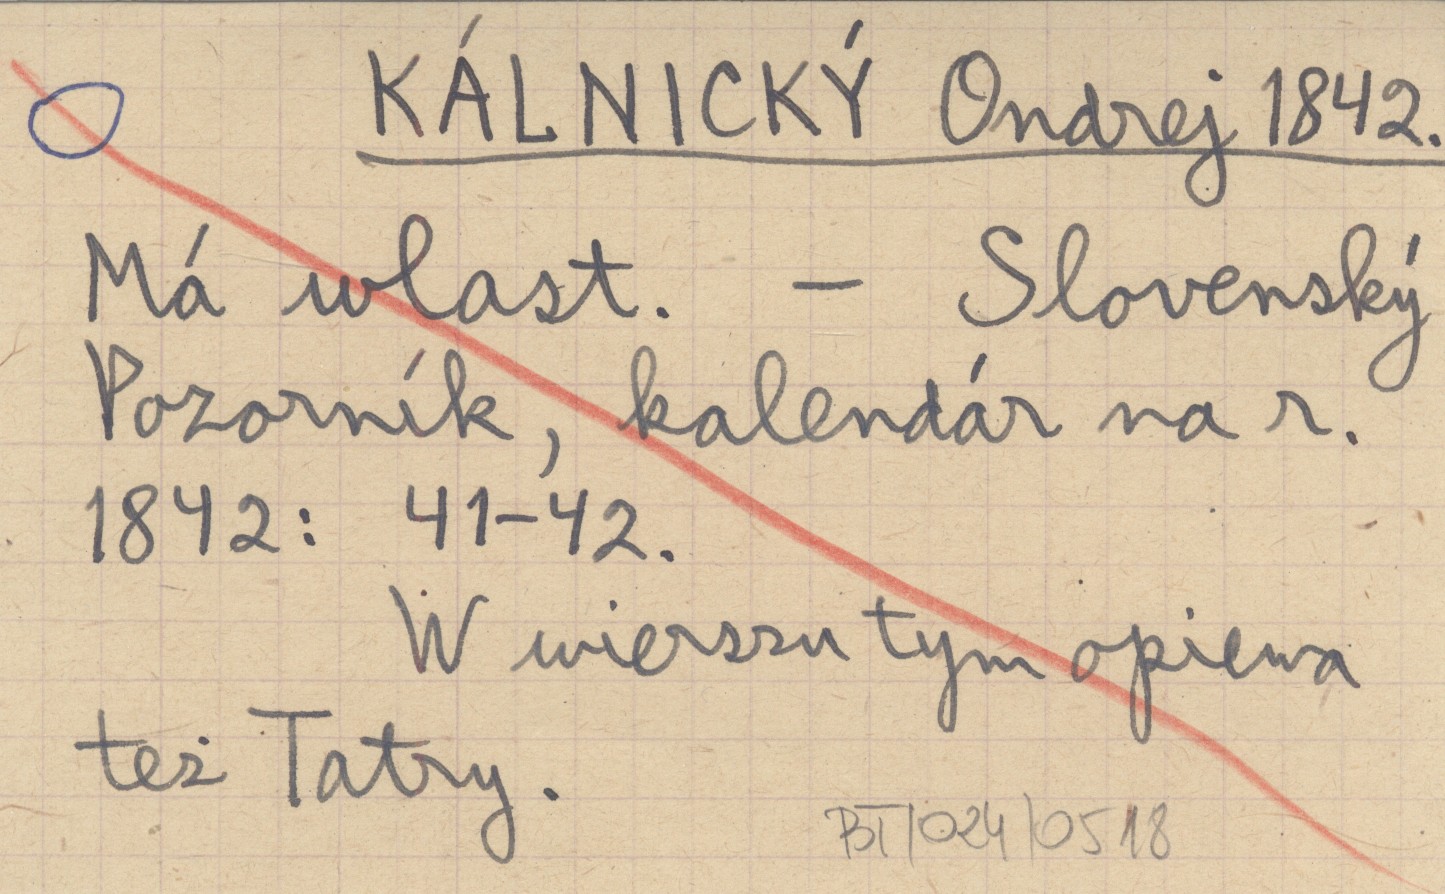 KÁLNICKÝ Ondrej 1842.
Má wlast. – Slovenský
Pozorník, kalendár na r.
1842: 41-42.
W wierszu tym opiewa
też Tatry.
BT/024/0518